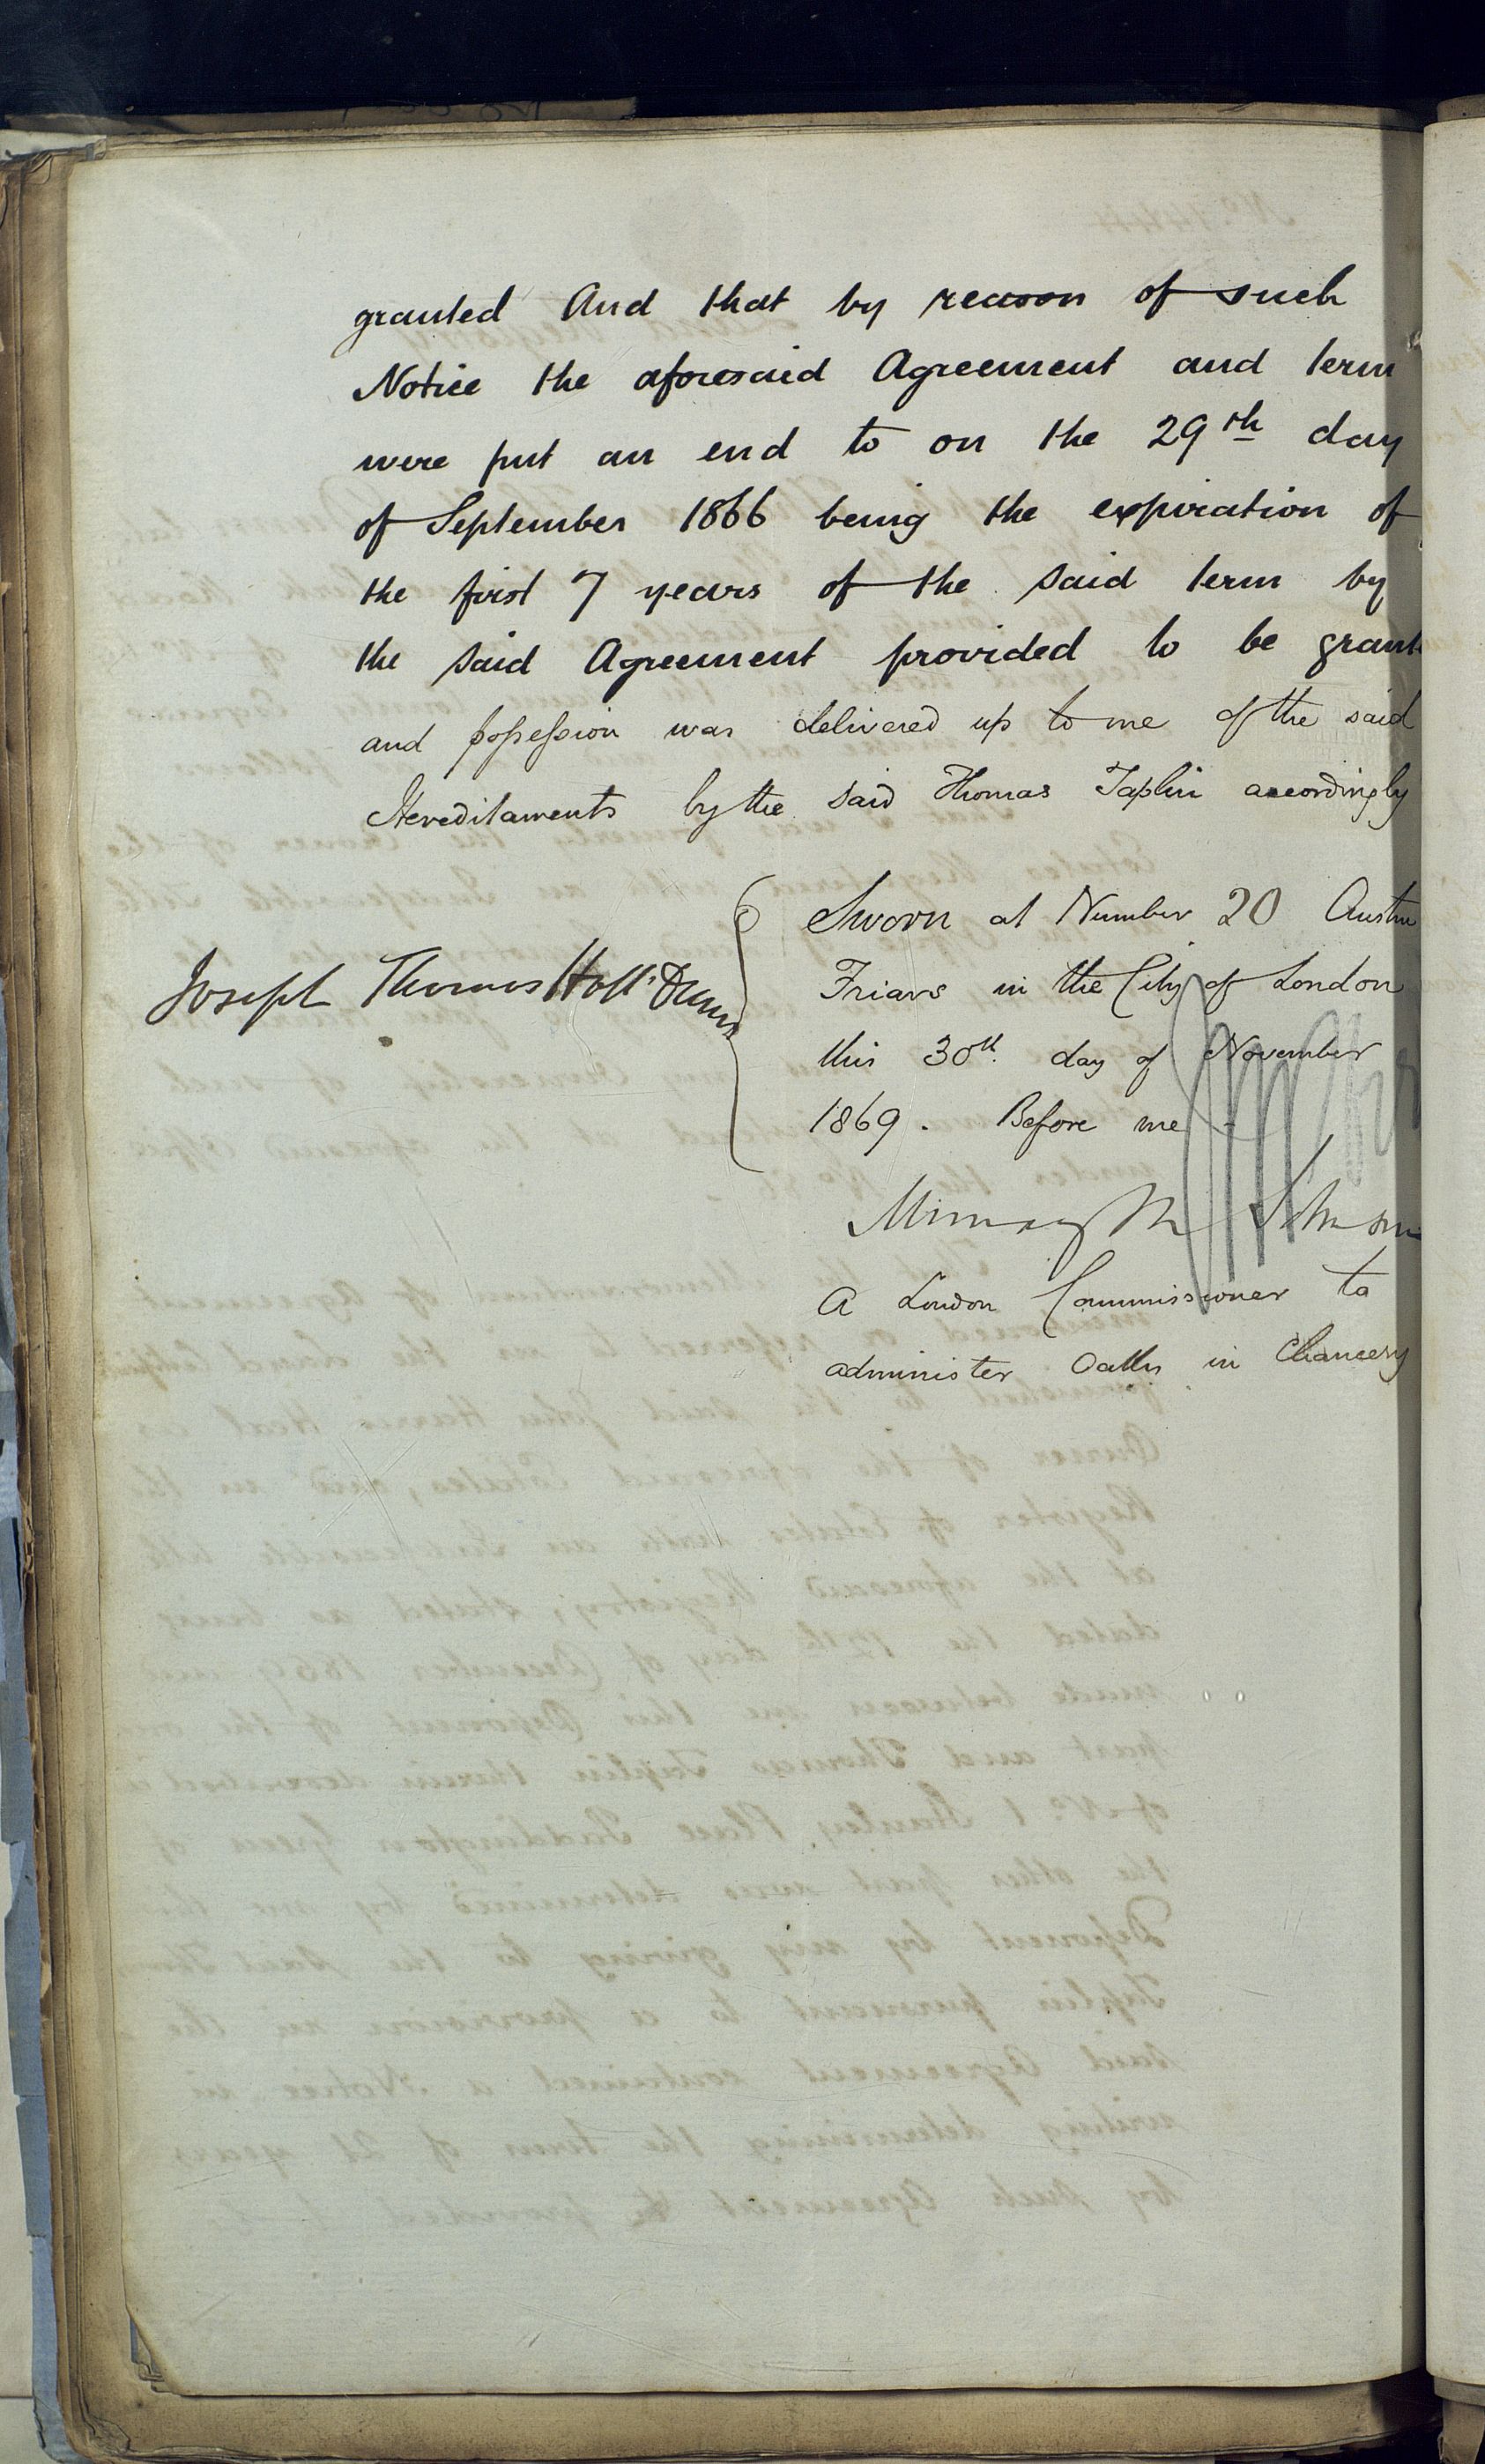 granted And that by reason of such
Notice the aforesaid Agreement and term
were put an end to on the 29th day
of September 1866 being the expiration of
the first 7 years of the said term by
the said Agreement provided to be grant
and possession was delivered up to me of the said
Hereditaments by the said Thomas Taplin accordingly
Joseph Thomas
Sworn at Number 20 Austin
Friars in the City of London
this 30th day of November
1869. Before me
A London Commissioner to
administer Oaths in Chancery